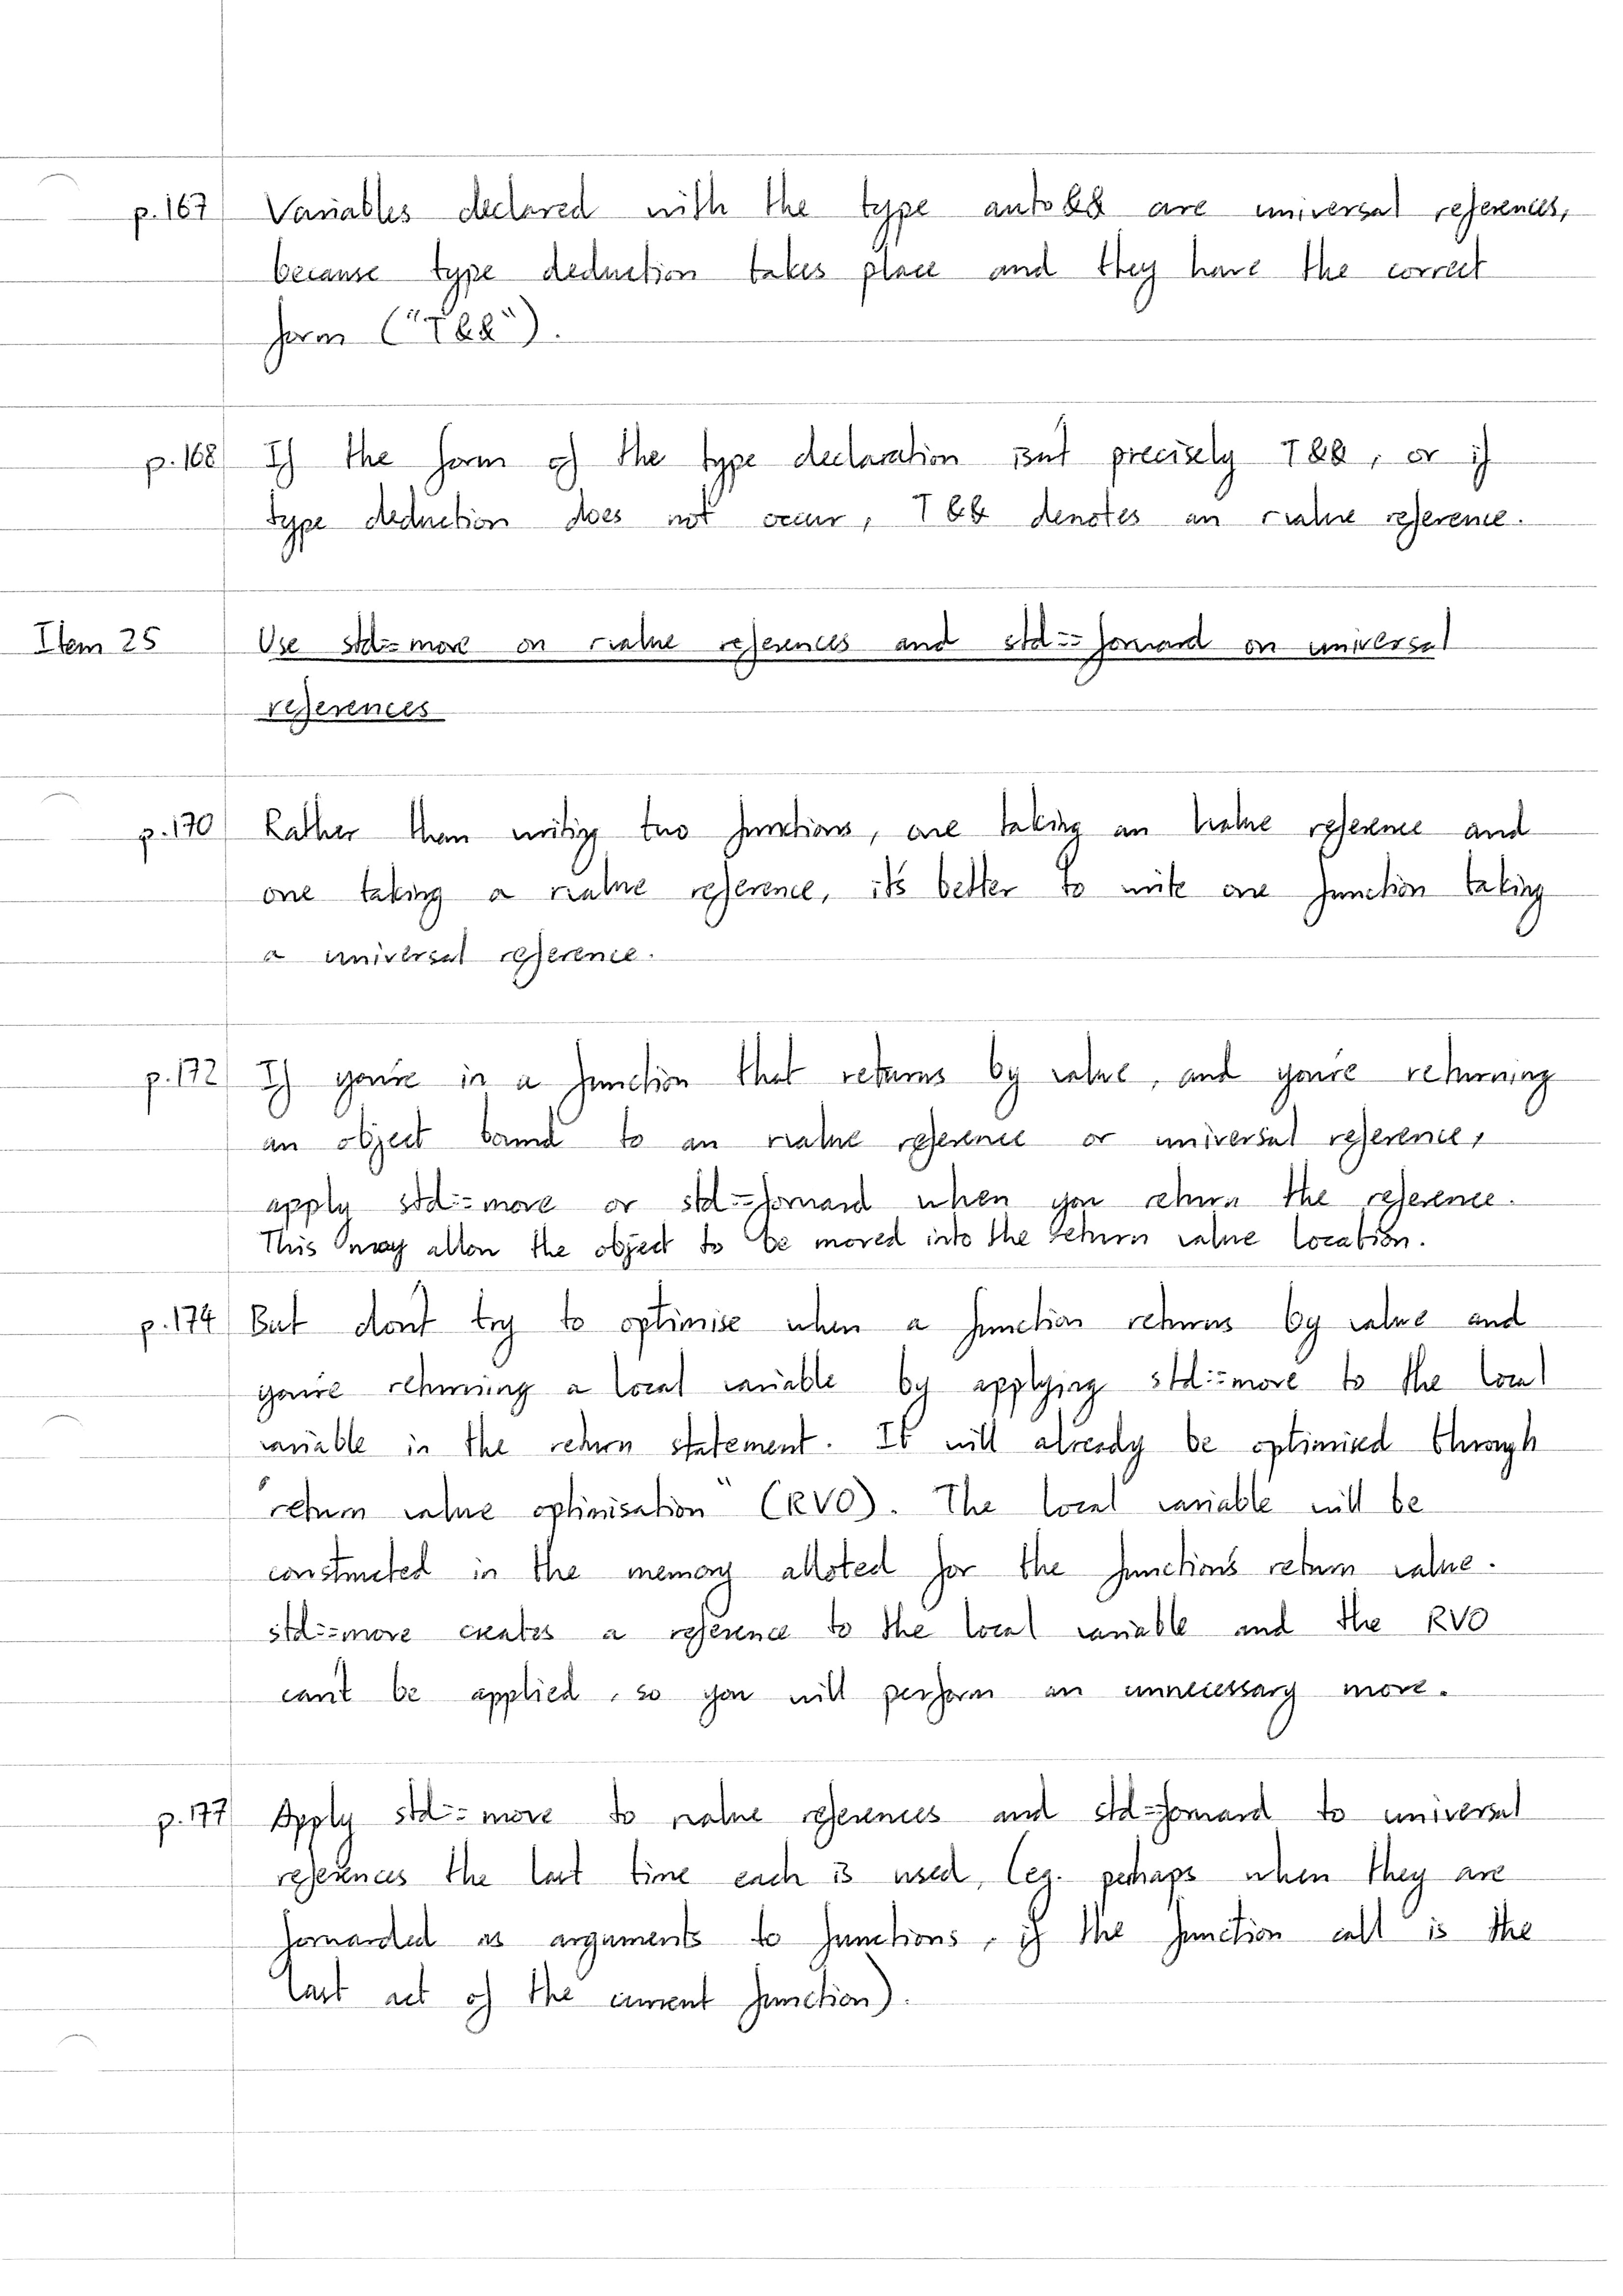 p.167 Variables declared with the type auto&& are universal references,
because type deduction takes place and they have the correct
form ("T&&").
p.168 If the form of the type declaration isn't precisely T&&, or if
type deduction does not occur, T&& denotes an rvalue reference.
Item 25 Use std::move on rvalue references and std::forward on universal
references
p.170 Rather than writing two functions, one taking an lvalue reference and
one taking a rvalue reference, it's better to write one function taking
a universal reference.
p.172 If you're in a function that returns by value, and you're returning
an object bound to an rvalue reference or universal reference,
apply std::move or std::forward when you return the reference.
This may allow the object to be moved into the return value location.
p.174 But don't try to optimise when a function returns by value and
you're returning a local variable by applying std::move to the local
variable in the return statement. It will already be optimised through
"return value optimisation" (RVO). The local variable will be
constructed in the memory alloted for the function's return value.
std::move creates a reference to the local variable and the RVO
can't be applied, so you will perform an unnecessary move.
p.177 Apply std::move to rvalue references and std::forward to universal
references the last time each is used, (eg. perhaps when they are
forwarded as arguments to functions, if the function call is the
last act of the current function).